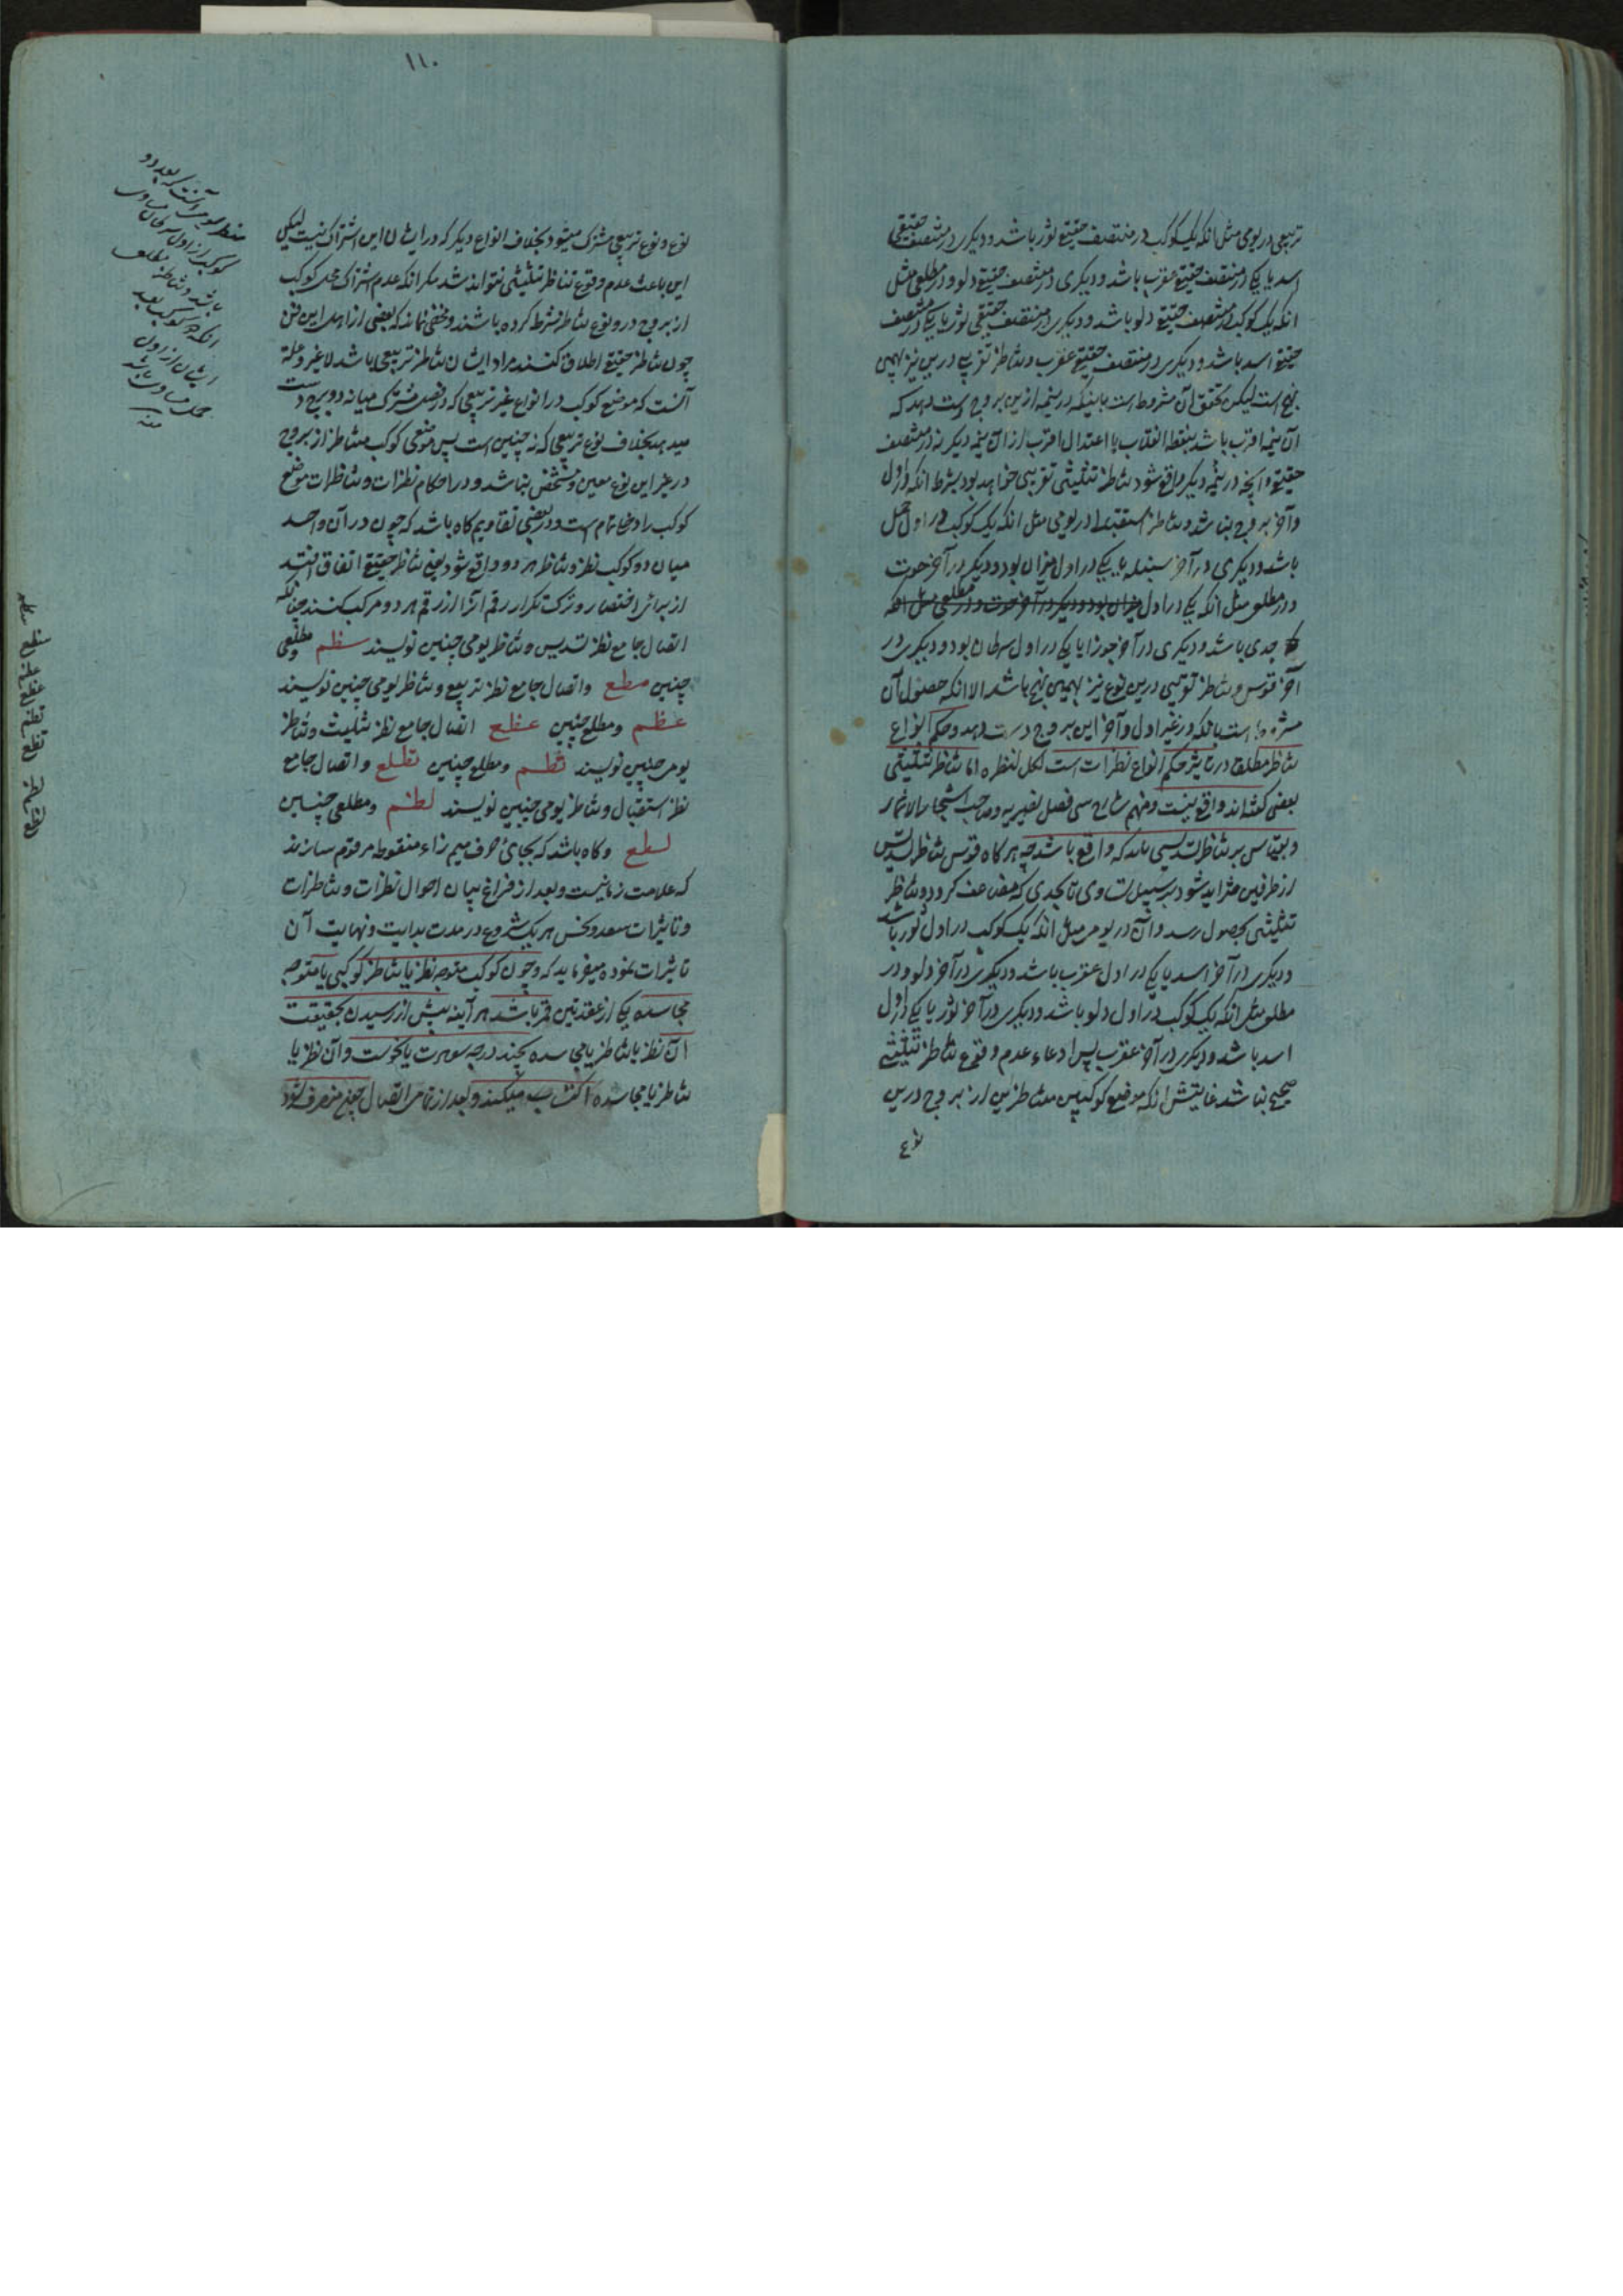 تربیعی در یومی مثل انکه یک کوکب در منتصف حقیقی ثور باشد و دیگری در منتصف حقیقی
اسد یا یکی در منتصف حقیقی عقرب باشد و دیگری در منتصف حقیقی دلو و در مطلعی مثل
انکه یک کوکب در منتصف حقیقی دلو باشد و دیگری در منتصف حقیقی ثور یا یکی در منتصف
حقیقی اسد باشد و دیگری در منتصف حقیقی عقرب و تناظر تقریبی درین نیز بهمین
نهج است لیکن تحقق آن مشروط است باینکه در نیمه ازین بروج دست دهد که
آن نیمه اقرب باشد بنقطه انقلاب یا اعتدال اقرب از آن نیمه دیگر نه در منتصف
حقیقی و آنچه در نیمه دیگر واقع شود تناظر تثلیثی تقریبی خواهد بود بشرط انکه در اول
و آخر بروج نباشد و تناظر استقبالی در یومی مثل انکه یک کوکب در اول حمل
باشد و دیگری در آخر سنبله یا یکی در اول میزان بود و دیگری در آخر حوت
و در مطلعی مثل انکه یکی در اول میزان بود و دیگری در آخر حوت و در مطلعی مثل انکه
جدی باشد و دیگری در آخر جوزا یا یکی در اول سرطان بود و دیگری در
آخر قوس و تناظر تقریبی درین نوع نیز بهمین نهج باشد الا انکه حصول آن
مشروط است بانکه در غیر اول و آخر این بروج دست دهد و حکم انواع
تناظر مطلقا در تاثیر حکم انواع نظرات است لکل لنظره اما تناظر تثلیثی
بعضی گفته‌اند واقع نیست و منهم شارح سی فصل نصیریه و صاحب
و بقیاس بر تناظر تسدیسی باید که واقع باشد چه هر کاه قوس تناظر تسدیس
از طرفین متزاید شود بر سبیل تساوی تا بحدی که مضاعف کردد تناظر
تثلیثی بحصول رسد و آن در یومی مثل انکه یک کوکب در اول ثور باشد
و دیگری در آخر اسد یا یکی در اول عقرب باشد و دیگری در آخر دلو و در
مطلعی مثل انکه یک کوکب در اول دلو باشد و دیگری در آخر ثور یا یکی در اول
اسد باشد و دیگری در آخر عقرب پس ادعاء عدم وقوع تناظر تثلیثی
صحیح نباشد غایتش انکه موضع کوکبین متناظرین از بروج درین
نوع
۱۱۰
نوع و نوع تربیعی مشترک میشود بخلاف انواع دیگر که در ایشان این اشتراک نیست لیکن
این باعث عدم وقوع تناظر تثلیثی نتواند شد مکر انکه عدم اشتراک محل کوکب
از بروج در وقوع تناظر شرط کرده باشند و مخفی نماند که بعضی از اهل این فن
چون تناظر حقیقی اطلاق کنند مراد ایشان تناظر تربیعی باشد لاغیر و علة
آنست که موضع کوکب در انواع غیر تربیعی که در فصل مشترک میانه دو برج دست
میدهد بخلاف نوع تربیعی که نه چنین است پس موضعی کوکب متناظر از بروج
در غیر این نوع معین و مشخص نباشد و در احکام نظرات و تناظرات موضع
کوکب را دخل تمام است و در بعضی تقاویم کاه باشد که چون در آن واحد
میان دو کوکب نظر و تناظر هر دو واقع شود یعنی تناظر حقیقی اتفاق افتد
از برای اختصار و ترک تکرار رقم انرا از رقم هر دو مرکب کنند چنانکه
اتصال جامع نظر تسدیس و تناظر یومی چنین نویسند سظم و مطلعی
چنین سطع و اتصال جامع نظر تربیع و تناظر یومی چنین نویسند
عظم و مطلع چنین عظع اتصال جامع نظر تثلیث و تناظر
یومی چنین نویسند ثظم و مطلع چنین ثظع و اتصال جامع
نظر استقبال و تناظر یومی چنین نویسند لظم و مطلعی چنین
لظع و کاه باشد که بجای حرف میم زاء منقوطه مرقوم سازند
که علامت زمانیست و بعد از فراغ بیان احوال نظرات و تناظرات
و تاثیرات سعد و نحس هر یک شروع در مدت بدایت و نهایت آن
تاثیرات نموده میفرماید که و چون کوکب متوجه نظر یا تناظر کوکبی یا متوجه
مجاسده یکی از عقدتین قمر باشد هر آینه پیش از رسیدن بحقیقت
آن نظر یا تناظر یا مجاسده بچند درجه سعادت یا نحوست و آن نظر یا
تناظر یا مجاسده اکتساب میکند و بعد از تمامی اتصال چون منصرف شود
آنست که بعد دو
کوکب از اول سرطان مساوی
باشد و تناظر مطلعی
انکه دو کوکب بعد
ایشان از اول
حمل مساوی باشد
منه